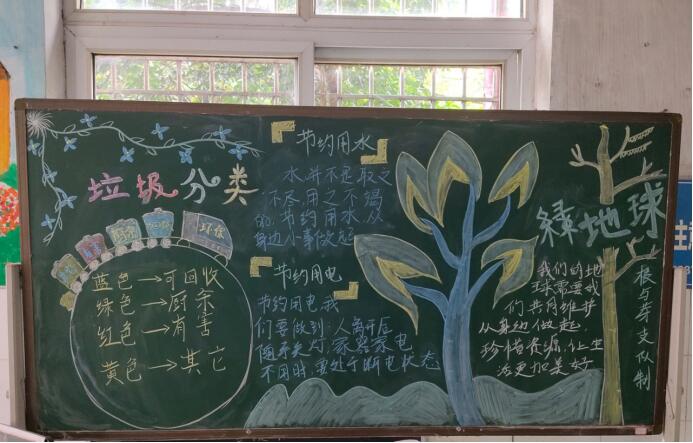 垃圾分类
环保
蓝色→可回收
绿色→厨余
红色→有害
黄色→其它
节约用水
水,并不是取之
不尽,用之不竭
的,节约用水,从
身边小事做起
节约用电
节约用电,我
们要做到:人离开后
随手关灯,家器家电
不用时,要处于断电状态
绿地球
我们的地
球需要我
们共同维护
从身边做起,
珍惜资源,让生
活更加美好
根与芽支队制